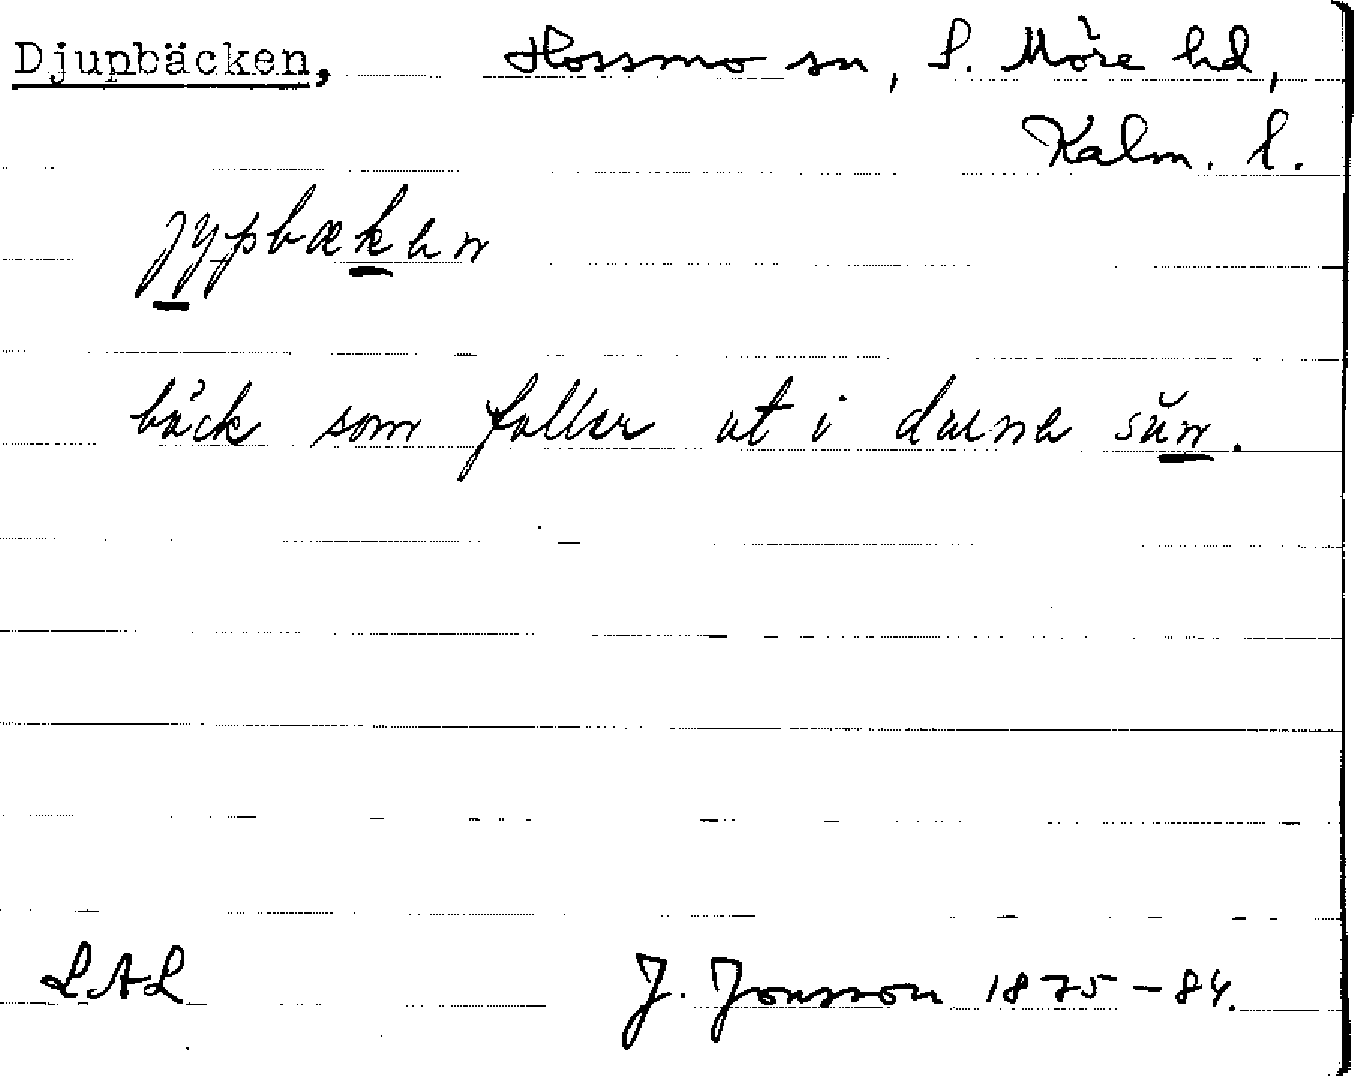 Djupbäcken, Hossmo sn, S. Möre hd,
Kalm. l.
jypbækən
bäck som faller ut i
LAL J. Jonsson 1875-84.